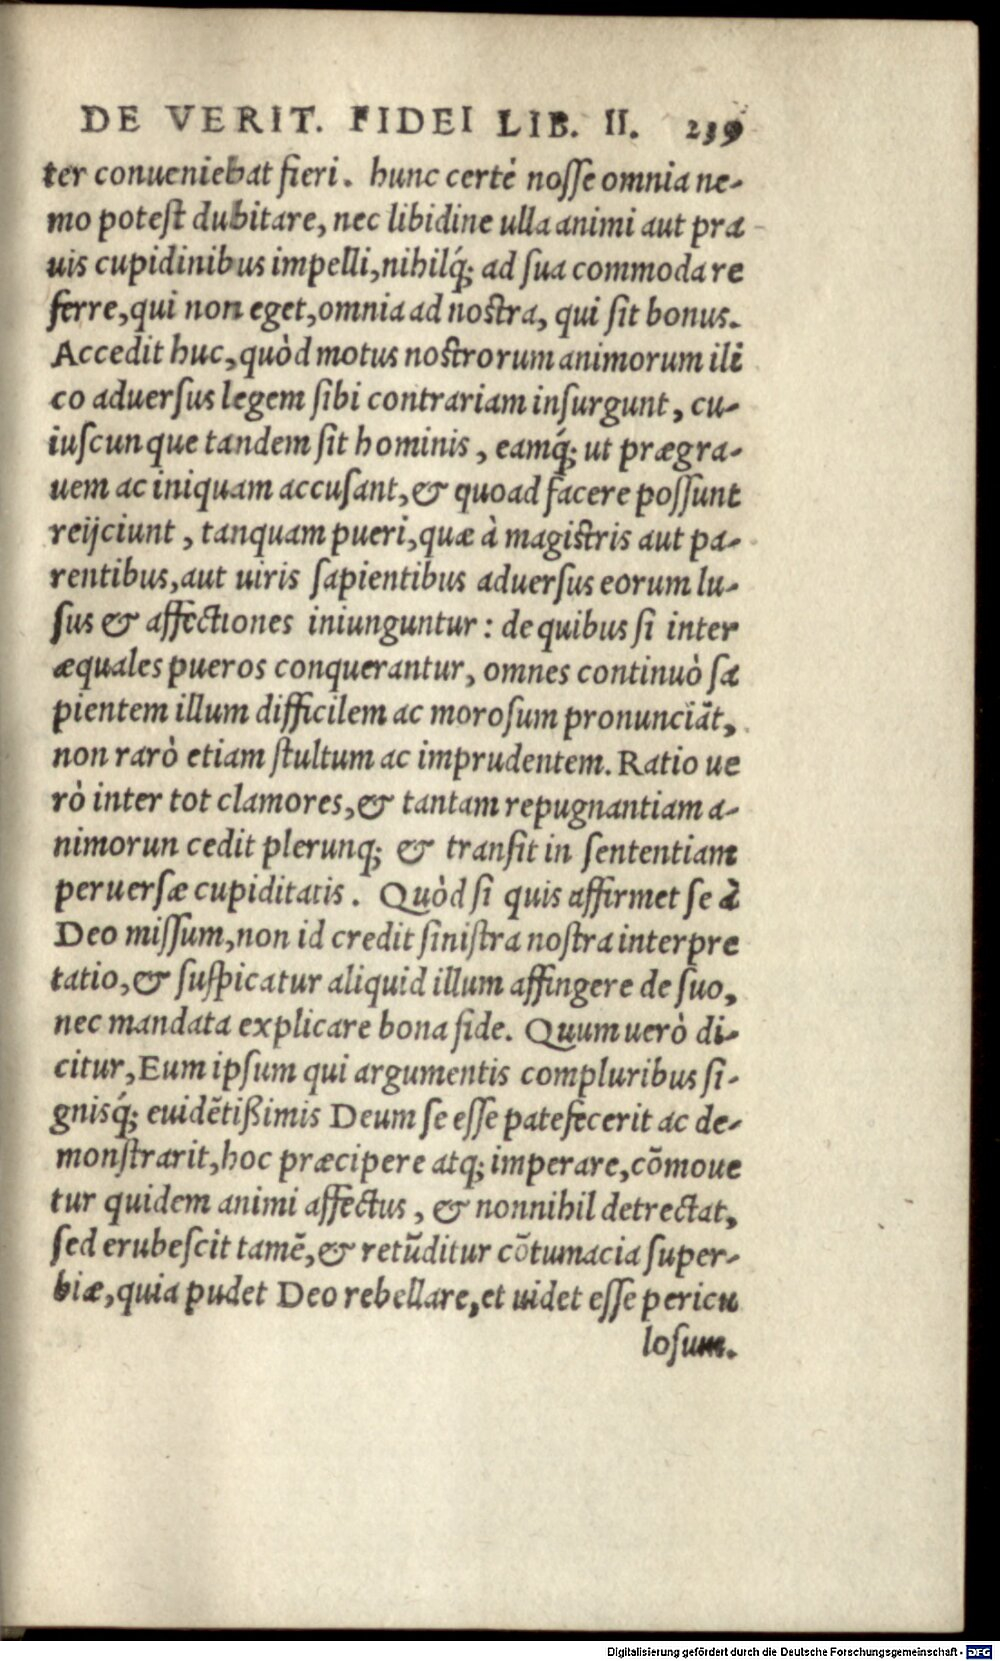 DE VERIT. FIDEI LIB. II. 239
ter conueniebat fieri. hunc certè nosse omnia ne-
mo potest dubitare, nec libidine ulla animi aut pra
uis cupidinibus impelli, nihilq́; ad sua commoda re
ferre, qui non eget, omnia ad nostra, qui sit bonus.
Accedit huc, quòd motus nostrorum animorum ili
co aduersus legem sibi contrariam insurgunt, cu-
iuscunque tandem sit hominis, eamq́; ut prægra-
uem ac iniquam accusant, & quoad facere possunt
reijciunt, tanquam pueri, quæ à magistris aut pa-
rentibus, aut uiris sapientibus aduersus eorum lu-
sus & affectiones iniunguntur: de quibus si inter
æquales pueros conquerantur, omnes continuò sa
pientem illum difficilem ac morosum pronunciãt,
non rarò etiam stultum ac imprudentem. Ratio ue
rò inter tot clamores, & tantam repugnantiam a-
nimorun cedit plerunq; & transit in sententiam
peruersæ cupiditatis. Quòd si quis affirmet se à
Deo missum, non id credit sinistra nostra interpre
tatio, & suspicatur aliquid illum affingere de suo,
nec mandata explicare bona fide. Quum uerò di-
citur, Eum ipsum qui argumentis compluribus si-
gnisq́; euidẽtißimis Deum se esse patefecerit ac de-
monstrarit, hoc præcipere atq; imperare, cõmoue
tur quidem animi affectus, & nonnihil detrectat,
sed erubescit tamẽ, & retũditur cõtumacia super-
biæ, quia pudet Deo rebellare, et uidet esse pericu
losum.
Digitalisierung gefördert durch die Deutsche Forschungsgemeinschaft - DFG